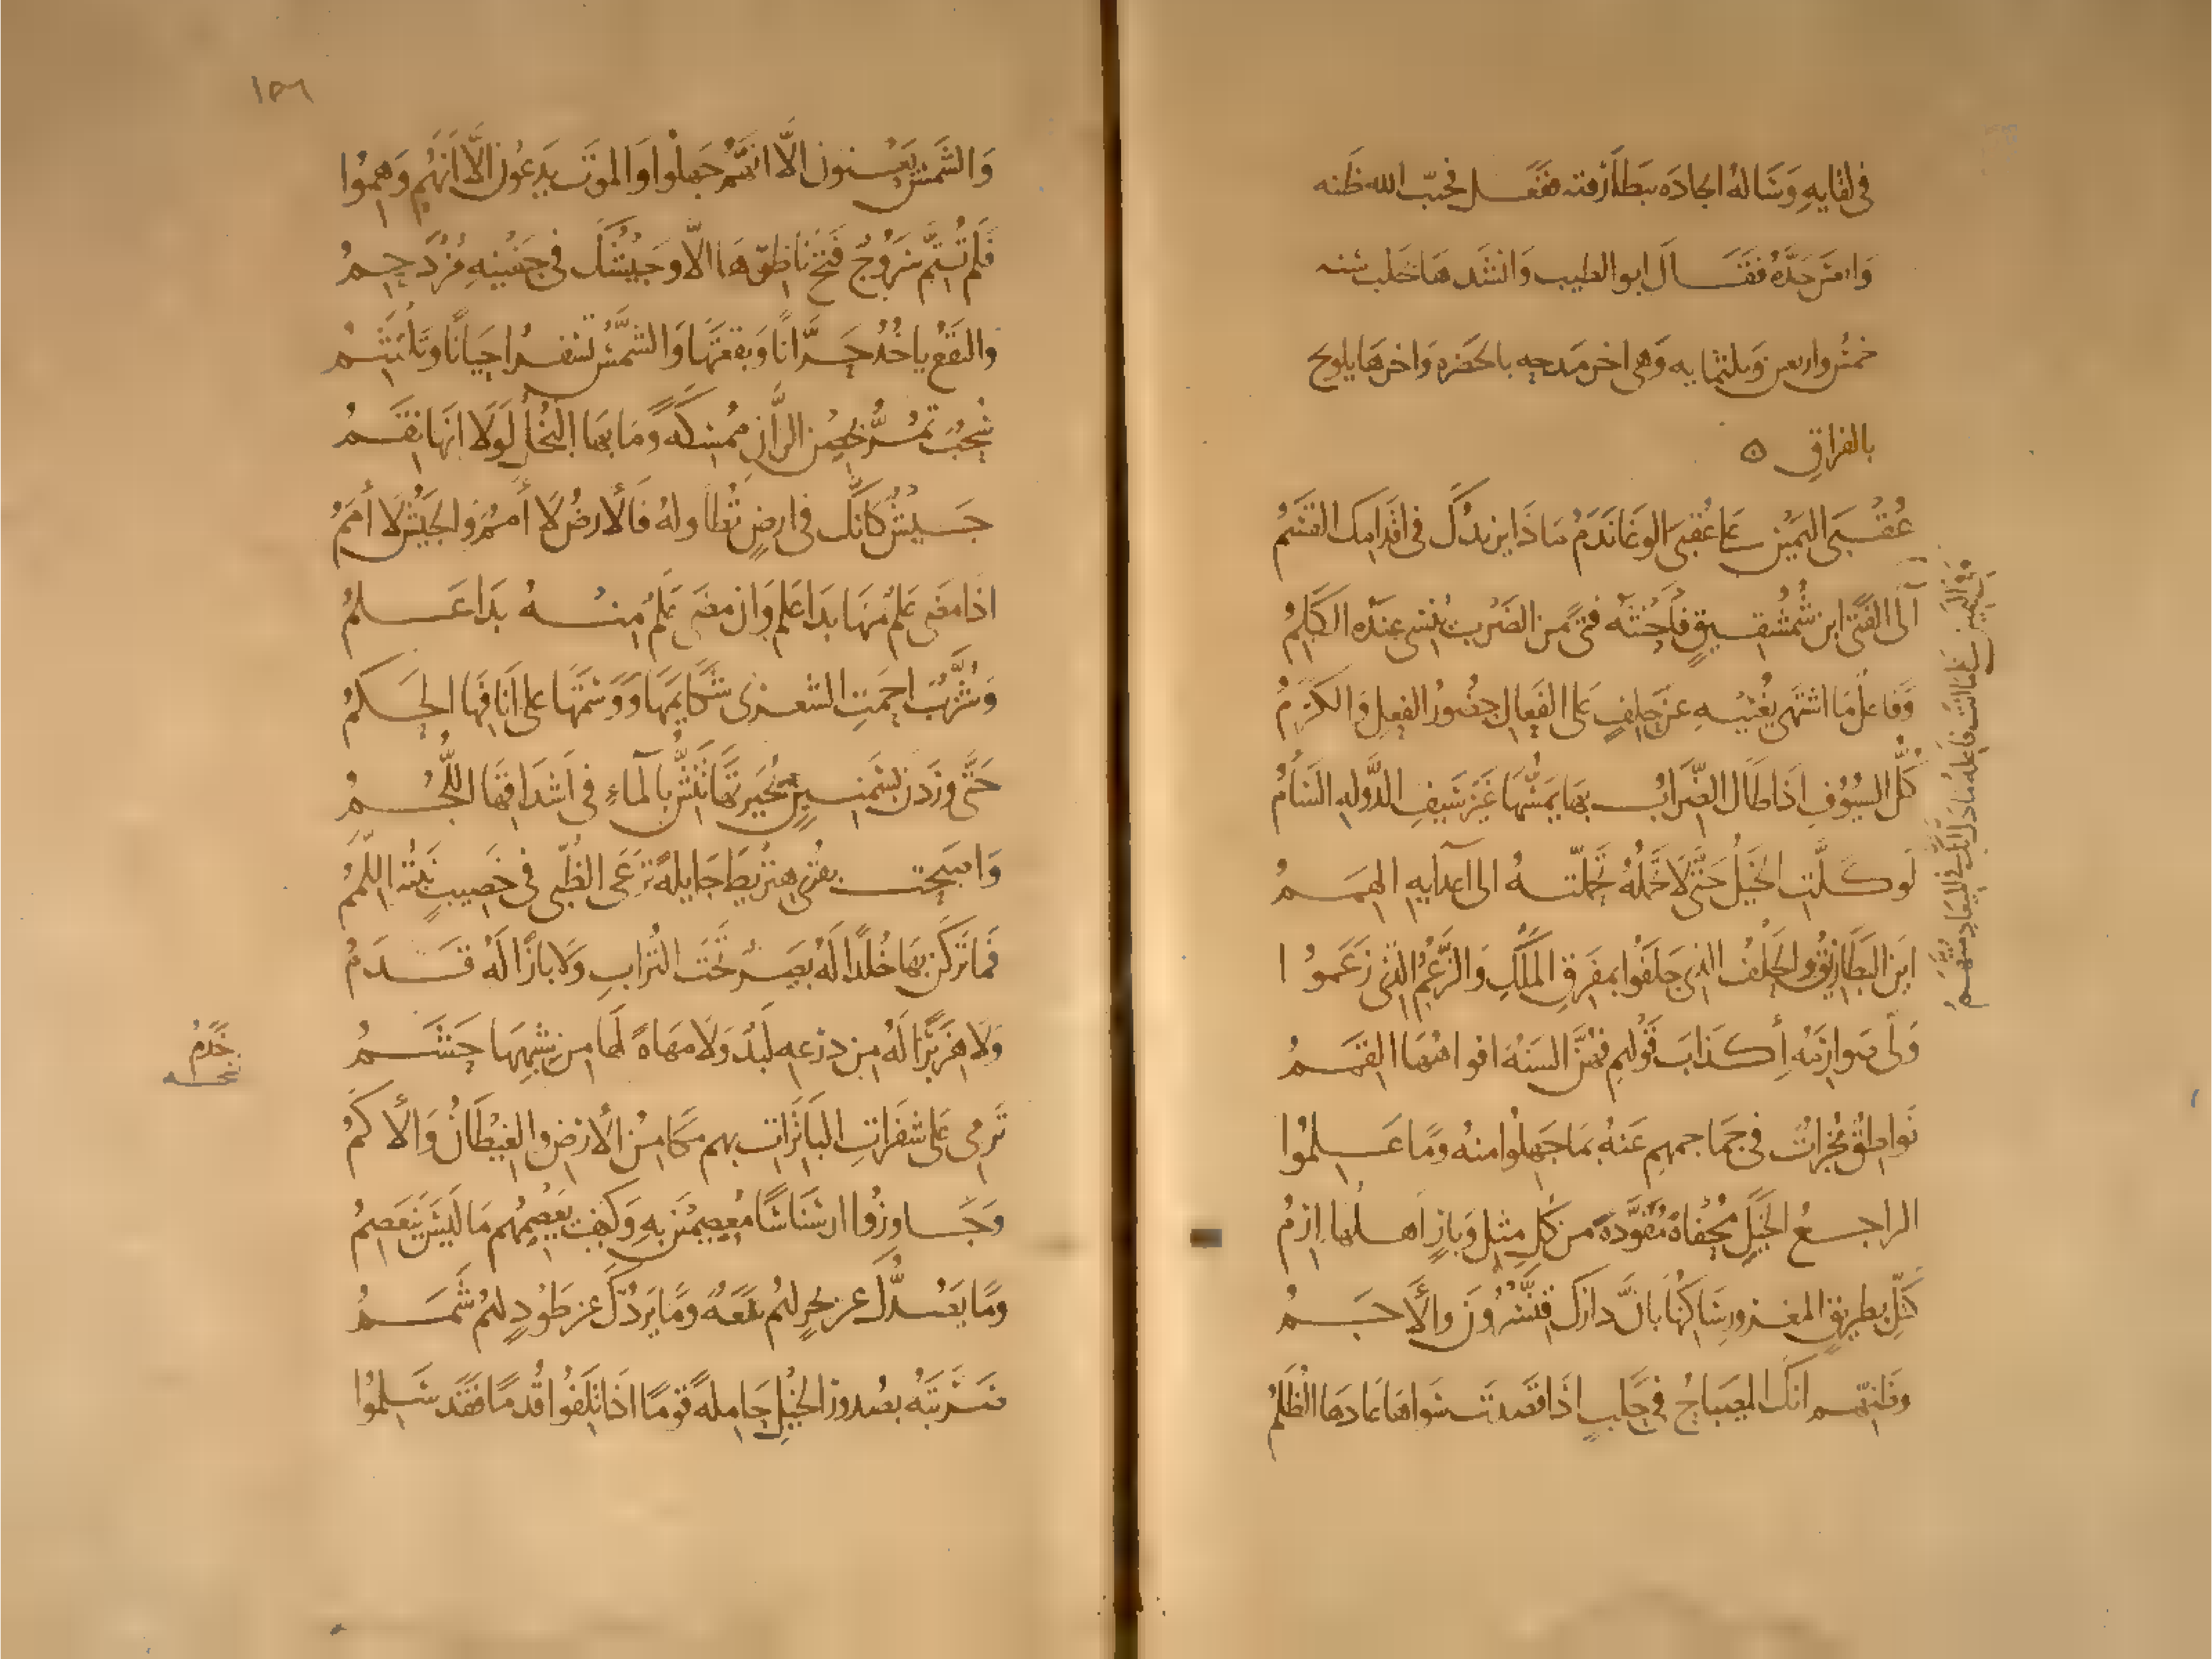 في لقايه وساله انجاده ببطارقته ففعل فخيب الله ظنه
واتعس جده فقال ابو الطيب وانشدها بحلب سنه
خمس واربعين وثلثمايه وهي اخر مدحه بالحضره واخرها يلوح
بالفراق
عُقْبَى اليَمين على عُقبى الوغا ندمُ ماذا يزيدُك في اقدامك القسَمُ
وفي اليمين على ما انت واعده ما دل انك في الميعاد متهم
آلى الفتى ابن شُمُشْقيقٍ فأحنثه فتىً من الضرب يُنسى عنده الكَلِمُ
وفاعلٌ ما اشتهى يُغنيه عن حلفٍ على الفعال حضورُ الفعل والكرمُ
كلُّ السيوف اذا طال الضِّراب بها يمسُّها غيرَ سيفِ الدولة السأمُ
لو كلَّتِ الخيلُ حتى لا تحملُهُ تحمَّلته الى اعدايه الهممُ
اين البطاريقُ والحَلِفُ الذي حلفوا بمفرق المَلْكِ والزعمُ الذي زعموا
ولّى صوارمَه أكذابَ قولهم فهنَّ السنةٌ افواهُها القممُ
نواطقٌ مخبراتٌ في جماجمهم عنهُ بما جهلوا منه وما علموا
الراجعُ الخيلَ مُحْفاةً مُقوَّدةً من كل مثل وبارٍ اهلها ارمُ
كتلِّ بطريق المغرور ساكنُها بانَّ دارَك قنَّسرونَ والأجمُ
وظنِّهم انك المصباحُ في حلبٍ اذا قصدت سواها عادها الظلَمُ
١٥٦
والشمسَ يعنون الّا انهم جهلوا والموتَ يدعون الّا انهم وهموا
فلم تُتمَّ سَروجٌ فتحَ ناظرها الّا وجيشُك في جفنيه مُزدحمُ
والنقعُ ياخُذُ حرّاناً وبقعتَها والشمسُ تسفرُ احياناً وتلتثمُ
سُحبٌ تمرُّ بحصن الران ممسكةً وما بها البُخلُ لولا انها نِقَمُ
جيشٌ كانّك في ارضٍ تُطاوله فالأرضُ لا أمَمٌ والجيشُ لا أمَمُ
اذا مضى علَمٌ منها بدا علم وان مضى علَمٌ منه بدا علَمُ
وشُزَّبٌ احمت الشعرى شكايمَها ووسَّمَتها على آنافها الحكَمُ
حتى وردن بسمنينٍ بحيرتَها تنِشُّ بالماءِ في اشداقها اللُّجُمُ
واصبحت بقرى هنزيطَ جايلةً ترعى الظُّبى في خصيبٍ نبتُه اللِّمَمُ
فما تركن بها خُلداً له بصرٌ تحت التراب ولا بازاً له قدَمُ
ولا هِزَبراً له من درعه لبدٌ ولا مهاةً لها من شبهها حشَمُ
خدَم
نسخه
تَرمي على شفرات الباتراتِ بهم مكامنُ الأرض والغيطانُ والأكمُ
وجاوزوا ارسَناساً معصمين به وكيف يعصمُهم ما ليس ينعصمُ
وما يصُدُّكَ عن بحرٍ لهم سعةٌ وما يردُّكَ عن طَودٍ لهم شمَمُ
ضربتَه بصدور الخيل حاملةً قوماً اذا تَلِفوا قُدماً فقد سلموا